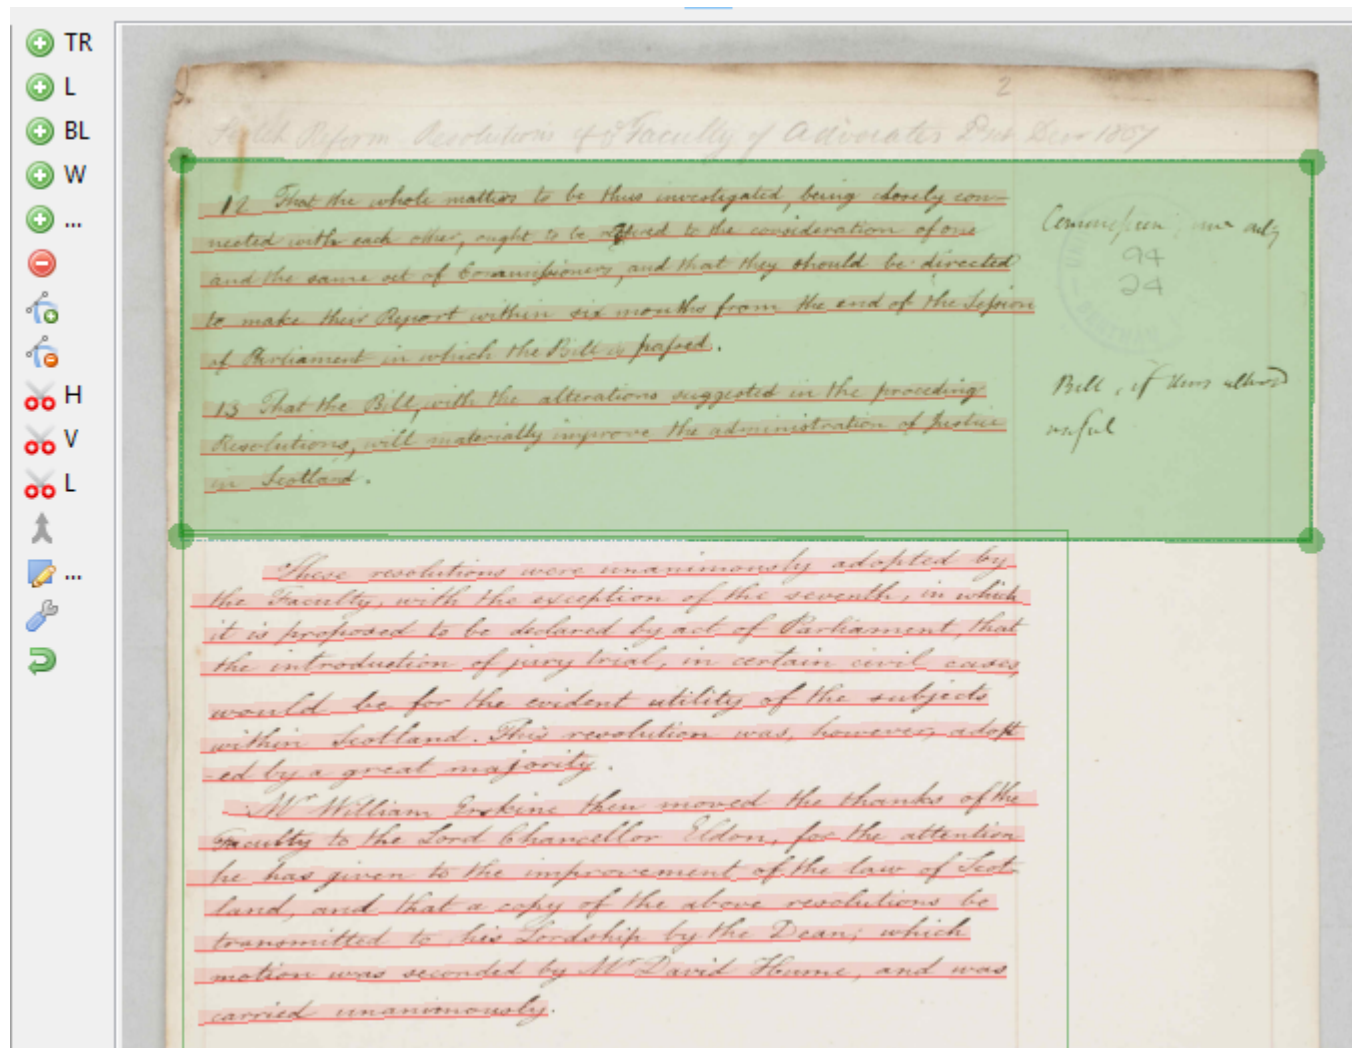 TR
L
BL
W
...
H
V
L
...
2
Scotch Reform Resolutions of Faculty of Advocates Decr 1807
12 That the whole matters to be thus investigated, being closely con-
nected with each other, ought to be referred to the consideration of one
and the same set of Commissioners, and that they should be directed
to make their Report within six months from the end of the Session
of Parliament in which the Bill is passed.
13 That the Bill, with the alterations suggested in the preceding
Resolutions, will materially improve the administration of Justice
in Scotland.
Commission; one only
94
24
Bill, if thus altered
useful
These resolutions were unanimously adopted by
the Faculty, with the exception of the seventh, in which
it is proposed to be declared by act of Parliament, that
the introduction of jury trial, in certain civil cases,
would be for the evident utility of the subjects
within Scotland. This resolution was, however, adopt
-ed by a great majority.
Mr William Erskine then moved the thanks of the
Faculty to the Lord Chancellor Eldon, for the attention
he has given to the improvement of the law of Scot-
land, and that a copy of the above resolutions be
transmitted to his Lordship by the Dean; which
motion was seconded by Mr David Hume, and was
carried unanimously.